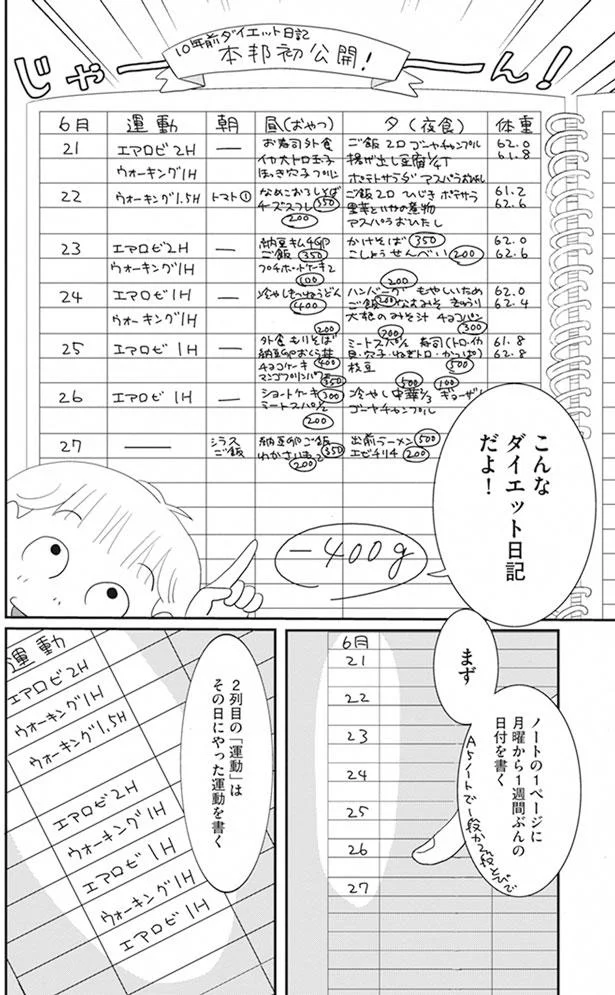 10年前ダイエット日記
本邦初公開!
じゃーーん!
6月 運動 朝 昼(おやつ) 夕(夜食) 体重
21 エアロビ2H ー お寿司外食 ご飯20 ゴーヤチャンプル 62.0
イカ 大トロ 玉子 揚げ出し豆腐1/4丁 61.8
ウォーキング1H ほっき 穴子 ポテトサラダ アスパラ
22 ウォーキング1.5H トマト① なめこおろしそば ご飯20 ひじき ポテサラ 61.2
チーズスフレ 350 里芋といかの煮物 62.6
200 アスパラおひたし
23 エアロビ2H ー 納豆キムチGP かけそば 350 62.0
ご飯 350 こしょうせんべい 200 62.6
ウォーキング1H プチホットケーキ2
100 200
24 エアロビ1H ー 冷やしきつねうどん ハンバーグ もやしいため 62.0
400 ご飯 200 なすみそ きゅうり 62.4
ウォーキング1H 大根のみそ汁 チョコパン
200 200 300
25 エアロビ1H ー 外食もりそば ミートスパ1/2 寿司(トロ・イカ 61.8
納豆GPおくら丼 貝・穴子・ねぎトロ・かっぱ) 62.8
チョコケーキ 400 枝豆 500
マンゴプリンパフェ
350 500 100
26 エアロビ1H ー ショートケーキ 300 冷やし中華2/3 ギョーザ
ミートスパ1/2 ゴーヤチャンプル
200
27 ー シラスご飯 納豆GPご飯 350 出前ラーメン 500
わかさいも2 エビチリ4 200
200
-400g
こんな
ダイエット日記
だよ!
6月
21
22
23
24
25
26
27
まず
ノートの1ページに
月曜から1週間ぶんの
日付を書く
A5ノートで1段か2段とびで
運動
エアロビ2H
ウォーキング1H
ウォーキング1.5H
エアロビ2H
ウォーキング1H
エアロビ1H
ウォーキング1H
エアロビ1H
2列目の「運動」は
その日にやった運動を書く